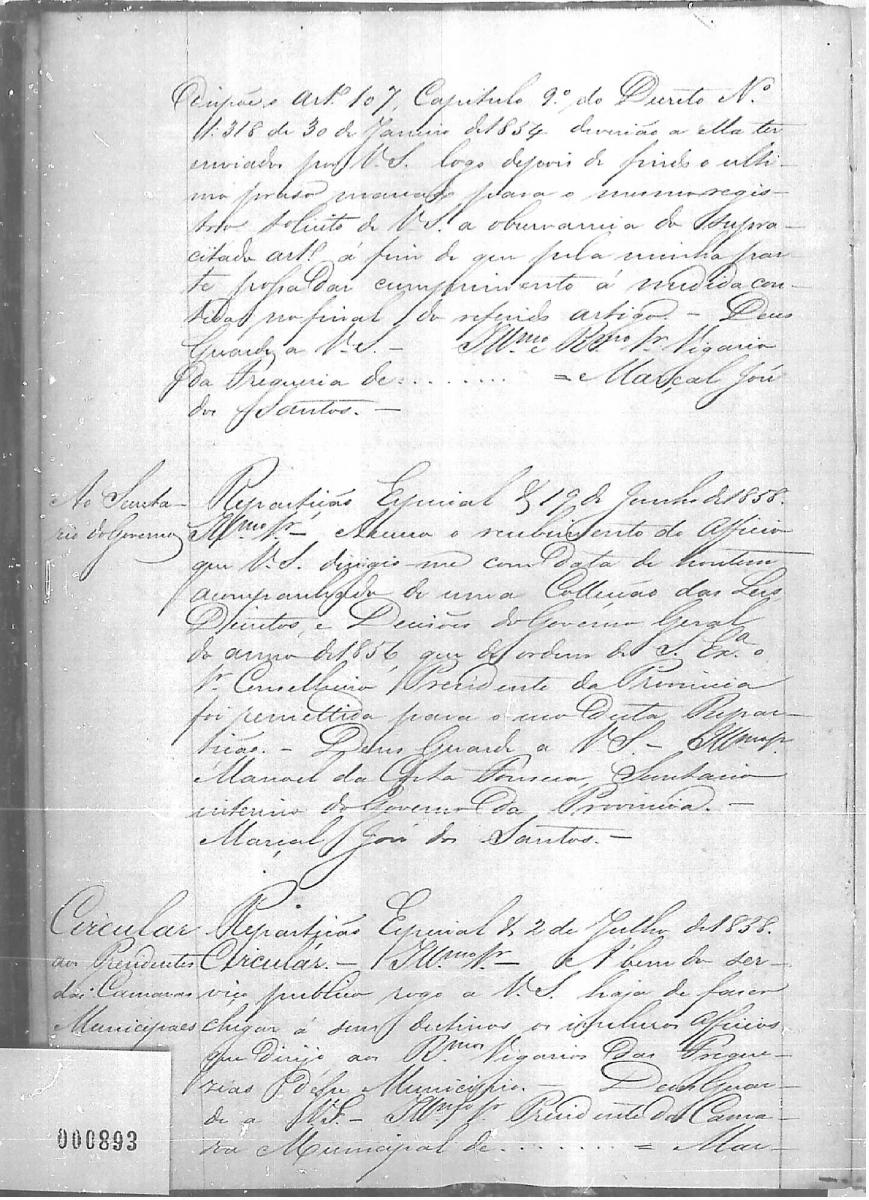 Dispõe o artº 107, Capitulo 9º do Decreto Nº
1:318 de 30 de Janeiro de 1854 deverião a
enviados por V.S. logo depois de findo o ulti-
mo praso marcado para o mesmo regis-
tro solicito de V.S. a observancia do supra-
citado artº á fim de que pela minha par-
te possa dar cumprimento á medida con-
tida no final do referido artigo. - Deus
Guarde a V.S. - Illmo e Rmo Sr Vigario
da Freguesia de: . . . . . . . . = Marçal José
dos Santos. -
Ao Secreta-
rio do Governo
Repartição Especial & 19 de Junho de 1858.
Illmo Sr - Accuso o recebimento do Officio
que V.S. dirigio-me com data de hontem
acompanhado de uma Collecção das Leis,
Decretos, e Decisões do Governo Geral
do anno de 1856, que de ordem de S. Exa o
Sr Conselheiro Presidente da Provincia
foi remettida para o uso desta Repar-
tição. - Deus Guarde a V.S. - Illmo Sr
Manoel da Costa Fonseca, Secretario
interino do Governo da Provincia. -
Marçal José dos Santos. -
Circular
aos Presidentes
das Camaras
Municipaes
Repartição Especial & 2 de Julho de 1858.
Circular. - Illmo Sr - A bem do ser-
viço publico rogo a V.S. haja de faser
chegar á seus destinos os inclusos officios
que dirijo aos Rmos Vigarios das Fregue-
zias d'esse Municipio. - Deus Guar-
de a V.S. - Illmo Sr Presidente da Cama-
ra Municipal de . . . . . . . . = Mar-
000893